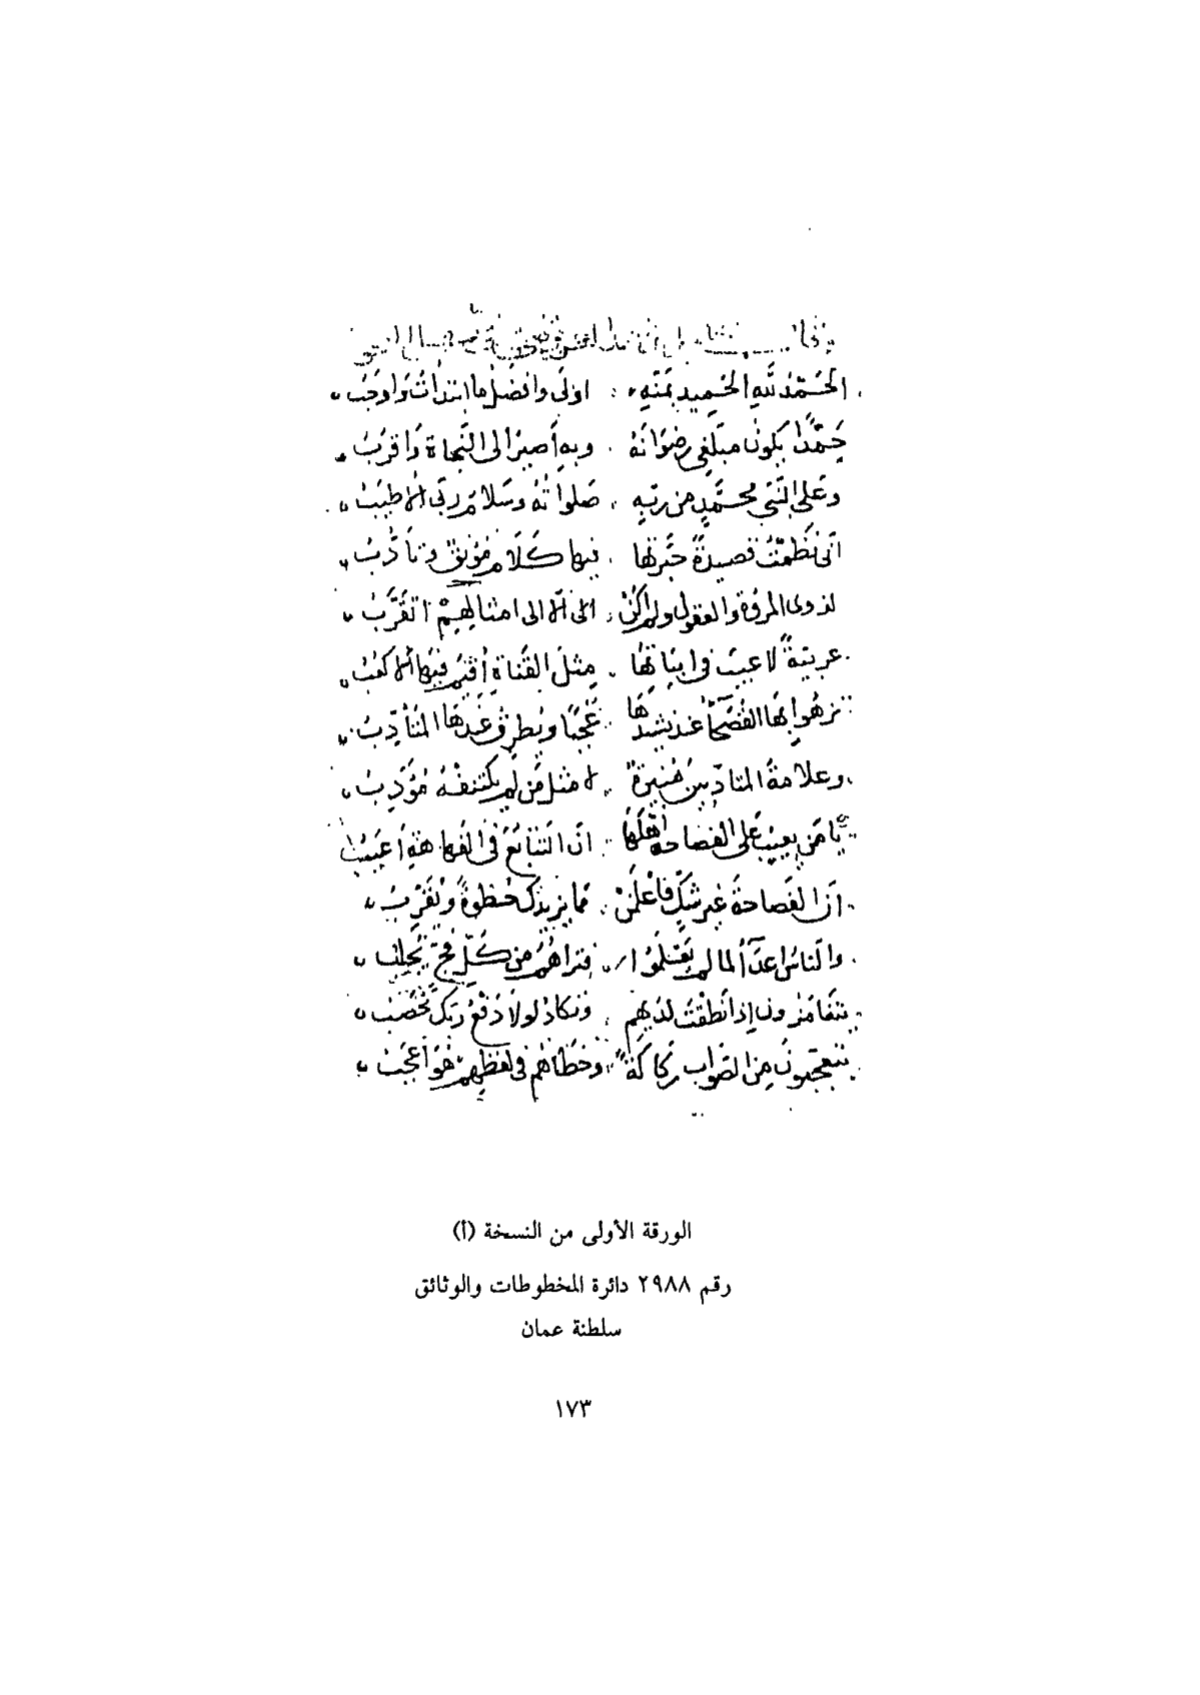 الحَمْدُ للّهِ الحَمِيدِ بمَنِّهِ اولَى وافضَلُ ما ابتدأتُ وَاوجَبُ
حَمْدًا يكونُ مبلّغى رضوَانَهُ وبهِ أَصيرُ الى النَّجاةِ وَاقرَبُ
وعَلى النَّبَىّ محمّدٍ من ربّهِ صَلواتُهُ وسَلامُ ربّى الاطيَبُ
انّى نَظَمْتُ قصيدةً حَبَّرتها فيها كَلامٌ مُؤنِقٌ وتَأدُّبُ
لذوى المروّةِ والعقولِ ولم اكُنْ الّا الى امثالِهِمْ اتقَرَّبُ
عربيّةً لا عيبَ فى ابيَاتِهَا مِثلَ القَناةِ أُقيمَ فيهَا الاكعُبُ
تزهُوا بِهَا الفُصَحَآءُ عندَ نشِيدِهَا عَجَبًا ويُطرِقُ عندَهَا المُتَأَدِّبُ
وعلامةُ المتادّبينَ مُنِيرةٌ لا مثلَ مَن لَم يكتنفْهُ مُؤَدِّبُ
يَا مَن يعِيبُ علَى الفصَاحةِ اهْلَهَا انّ التتابُعَ فى الفَهاهَةِ أَعيَبُ
انّ الفَصاحةَ غيرَ شكٍّ فاعْلَمَنْ ممّا يزيدُكَ حُظوةً ويُقَرِّبُ
والنّاسُ اعدآءٌ لما لم يَعْلَمُوا فتراهُمُ من كُلِّ فجٍّ يُجلِبُ
يتغَامَزونَ إِذَا نَطَقْتَ لدَيهِمِ وتكادُ لولا دَفْعُ ربّكَ تُحْصَبُ
يتعجّبونَ مِنَ الصَّوابِ رَكاكَةً وخَطَاهُم فى لفظِهِمْ هُوَ أعجَبُ
الورقة الأولى من النسخة (أ)
رقم ٢٩٨٨ دائرة المخطوطات والوثائق
سلطنة عمان
١٧٣